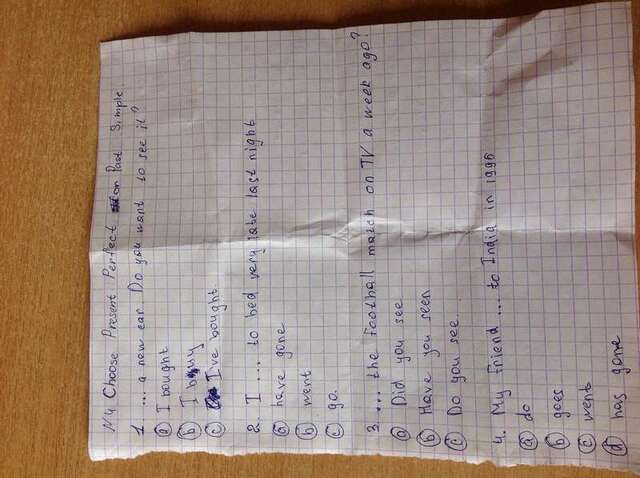 №4 Choose Present Perfect or Past Simple.
1. ... a new car. Do you want to see it?
a I bought
b I buy
c I've bought
2. I .... to bed very late last night
a have gone
b went
c go.
3. ... the football match on TV a week ago?
a Did you see
b Have you seen
c Do you see.
4. My friend ... to India in 1996
a do
b goes
c went
d has gone